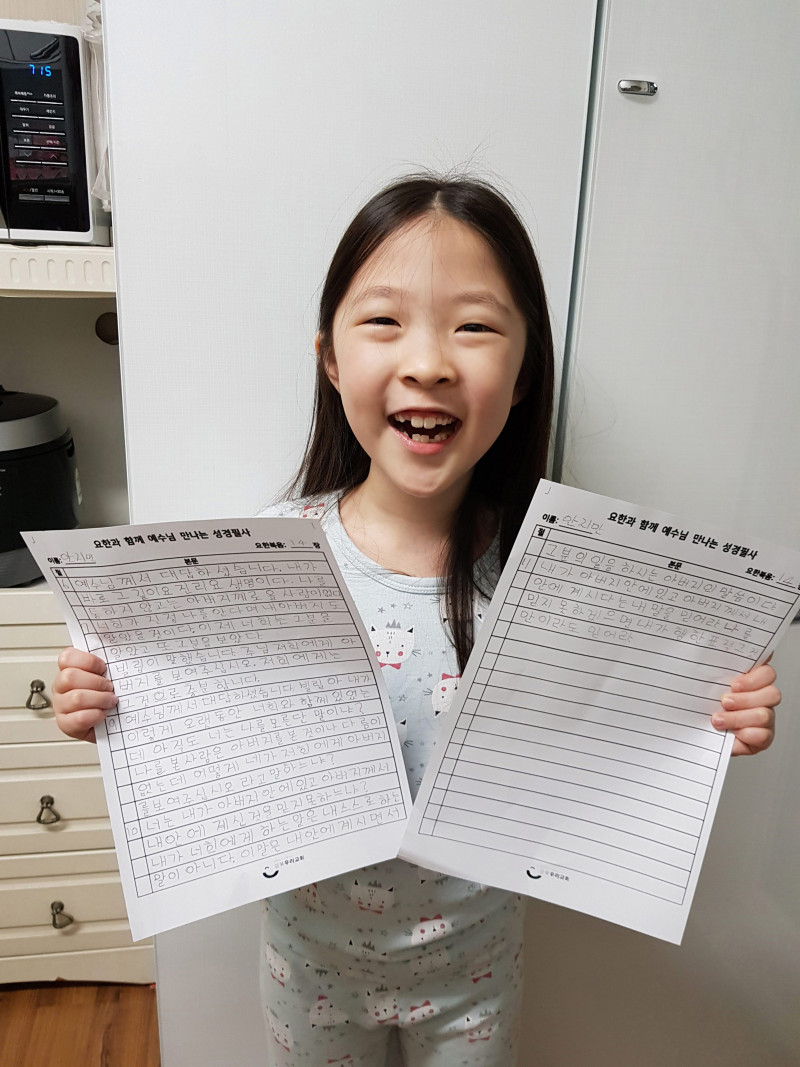 715
요한과 함께 예수님 만나는 성경필사
이름: 안지민
요한복음: 14 장
절
본문
예수님께서 대답하셨습니다. 내가
바로 그 길이요 진리요 생명이다. 나를
통하지 않고는 아버지께로 올 사람이 없다
너희가 진정 나를 안다면 내 아버지도
알았을 것이다. 이제 너희는 그분을
알았고 또 그분을 보았다.
빌립이 말했습니다. 주님 저희에게 아
버지를 보여주십시오. 저희에게는
그것으로 충분합니다.
예수님께서 대답하셨습니다 빌립아 내가
이렇게 오랫동안 너희와 함께 있었는
데 아직도 너는 나를 모른단 말이냐?
나를 본 사람은 아버지를 본 것이나 다름이
없는데 어떻게 네가 저희에게 아버지
를 보여조십시오 라고 말하느냐?
10 너는 내가 아버지 안에 있고 아버지께서
내 안에 계신 것을 믿지 못하느냐?
내가 너희에게 하는 말은 내 스스로 하는
말이 아니다. 이 말은 내 안에 계시면서
우리교회
요한과 함께 예수님 만나는 성경필사
이름: 안지민
요한복음: 14
절
본문
그분의 일을 하시는 아버지의 말씀이다
11 내가 아버지 안에 있고 아버지께서 내
안에 계시다는 내 말을 믿어라 나를
믿지 못하겠으면 내가 행한
만이라도 믿어라
우리교회